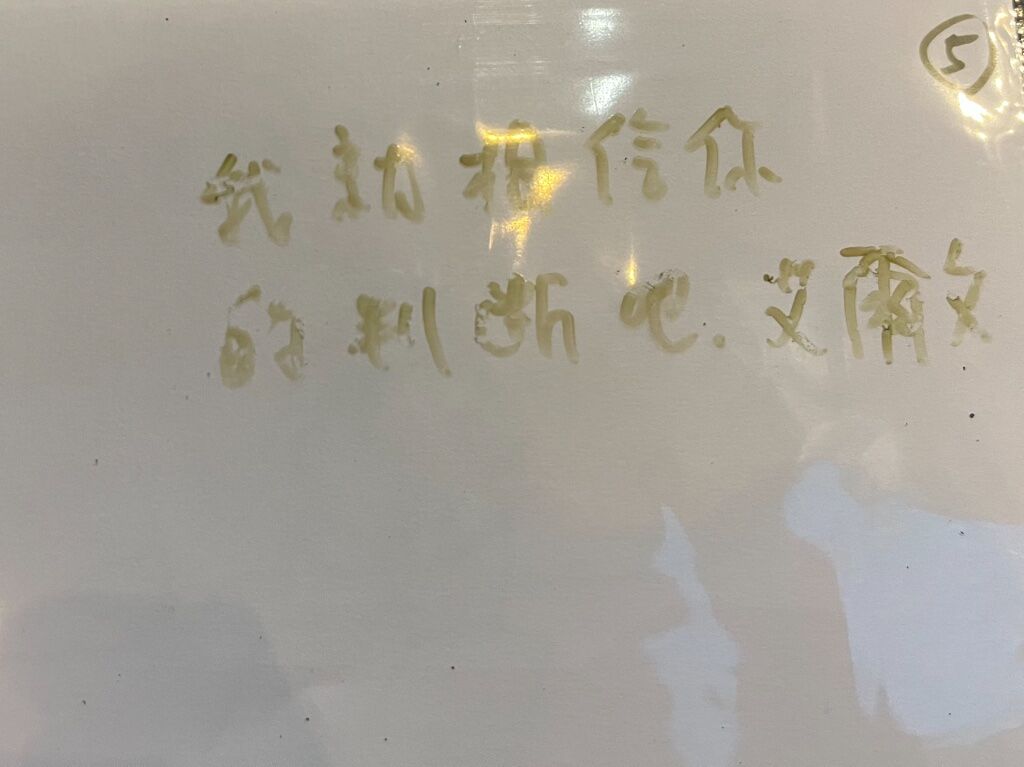 ⑤
我就相信你
的判斷吧.艾爾文